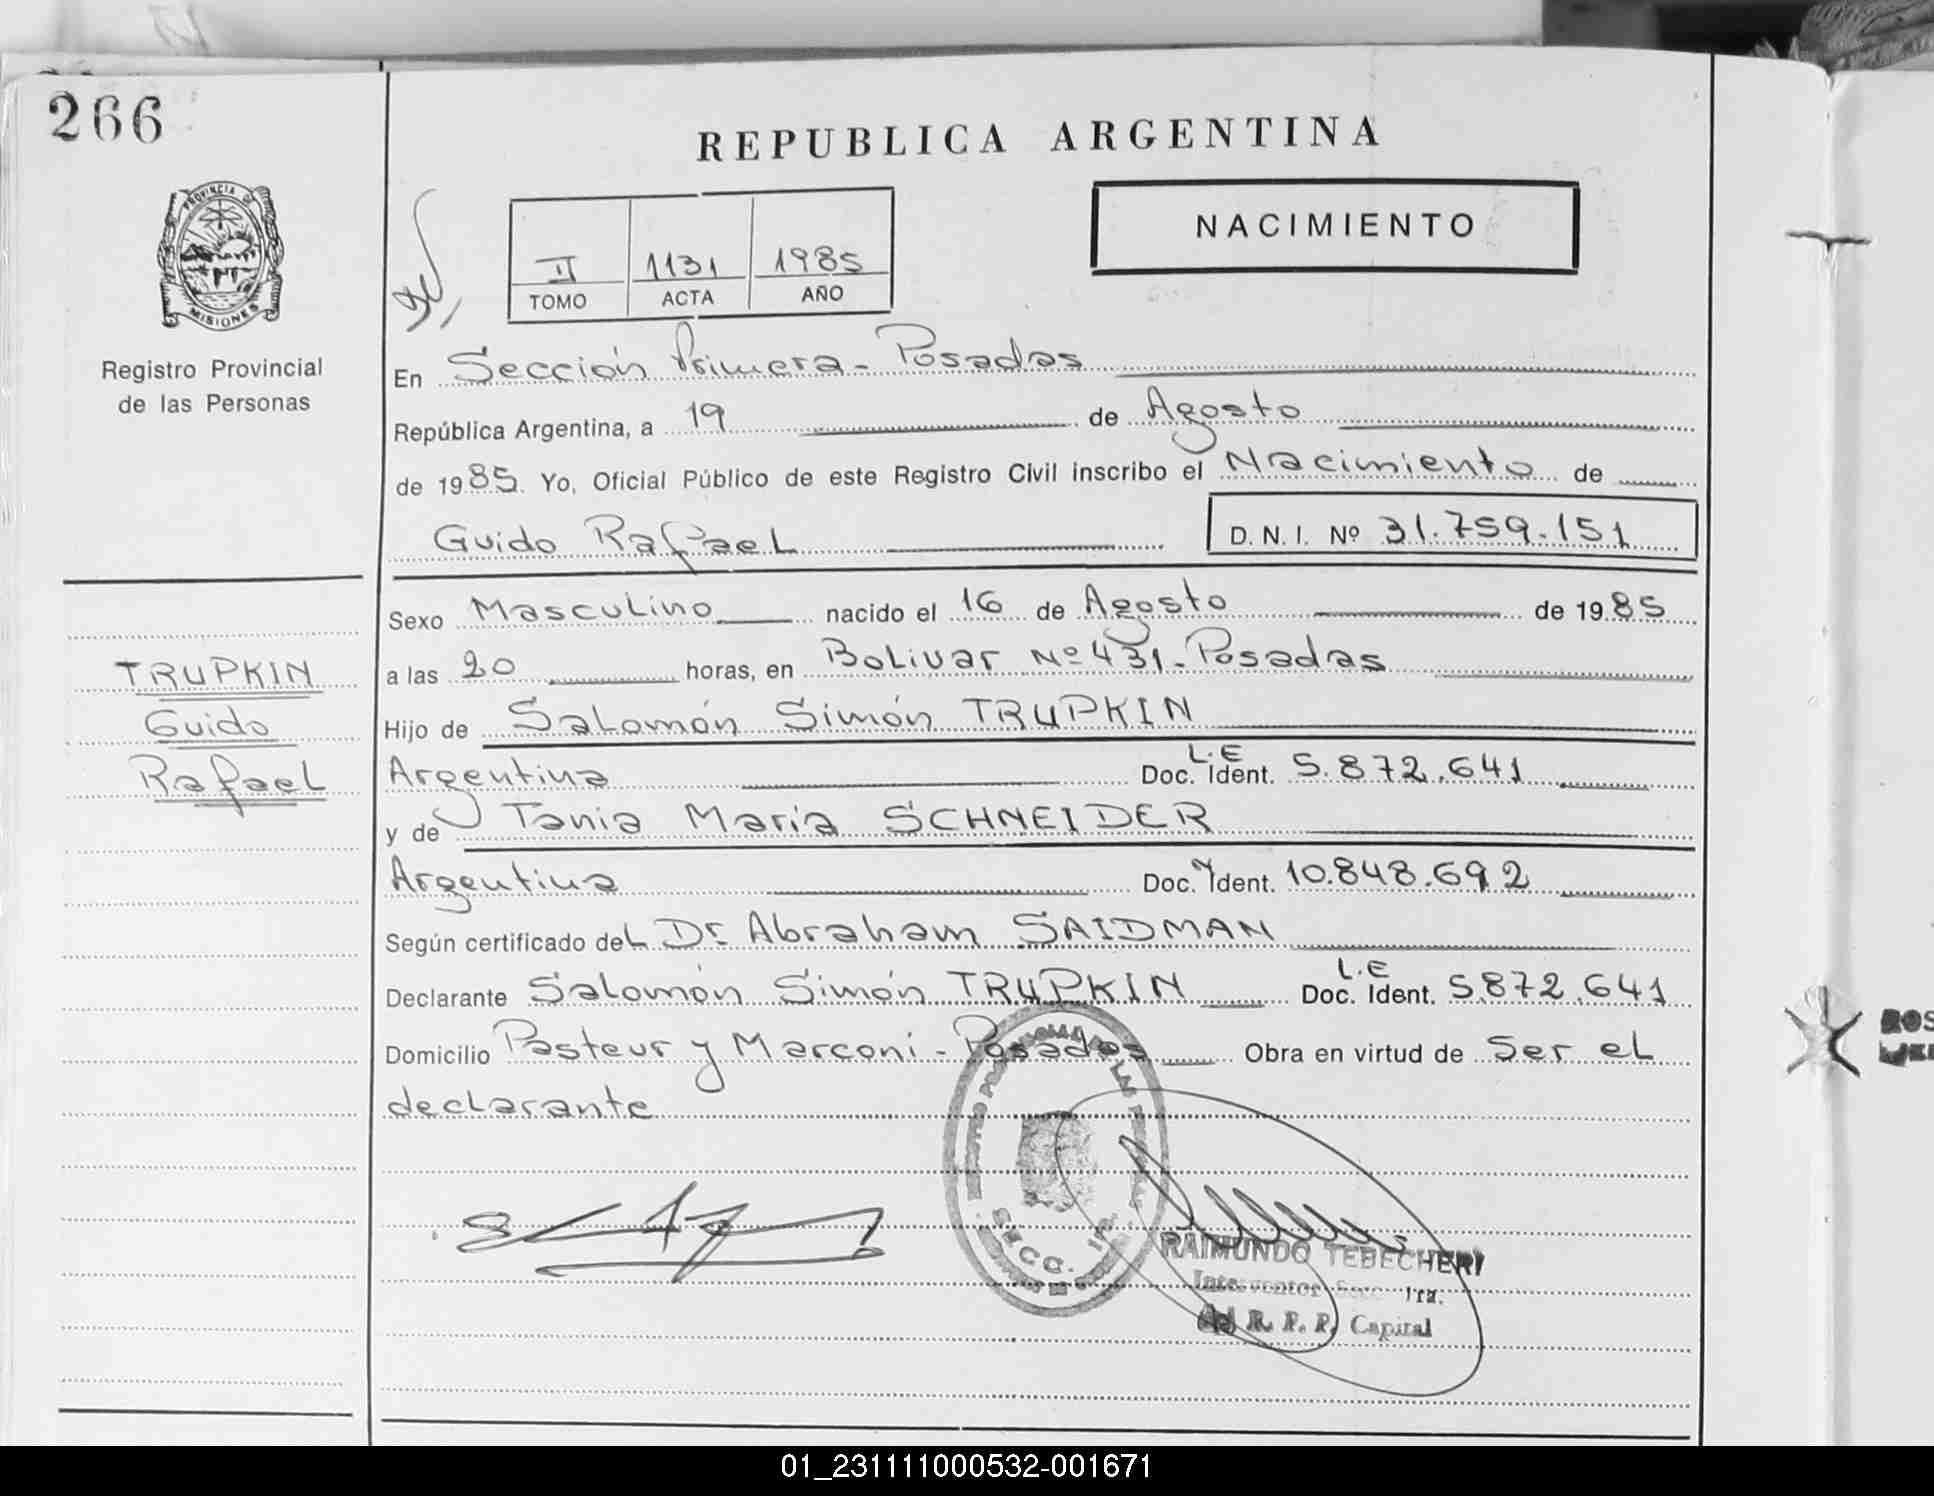 266
REPUBLICA ARGENTINA
PROVINCIA DE
MISIONES
Registro Provincial
de las Personas
II 1131 1985
TOMO ACTA AÑO
NACIMIENTO
En Sección Primera - Posadas
República Argentina, a 19 de Agosto
de 1985. Yo, Oficial Público de este Registro Civil inscribo el Nacimiento de
Guido Rafael D. N. I. Nº 31.759.151
TRUPKIN
Guido
Rafael
Sexo Masculino nacido el 16 de Agosto de 1985
a las 20 horas, en Bolivar Nº 431 - Posadas
Hijo de Salomón Simón TRUPKIN
Argentina Doc. Ident. L.E 5.872.641
y de Tania María SCHNEIDER
Argentina Doc. Ident. 10.848.692
Según certificado del Dr. Abraham SAIDMAN
Declarante Salomón Simón TRUPKIN Doc. Ident. L.E 5.872.641
Domicilio Pasteur y Marconi - Posadas Obra en virtud de Ser el
declarante
SECC. 1ra.
RAIMUNDO TEBECHERI
Interventor Secc. 1ra.
R. P. P. Capital
01_231111000532-001671